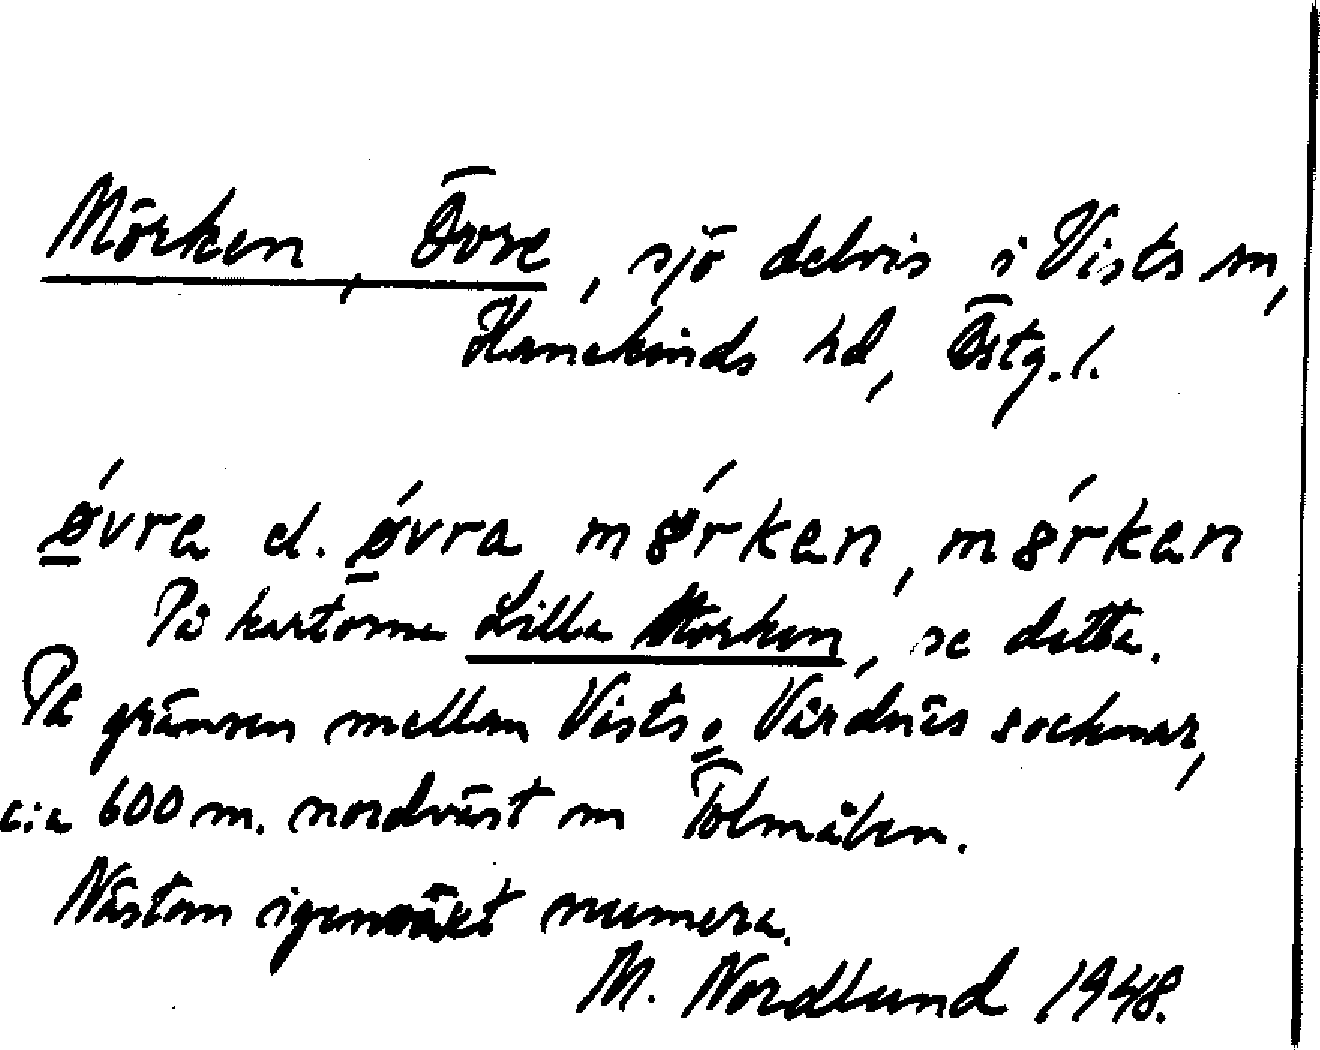 Mörken, Övre, sjö delvis i Vists sn,
Hanekinds hd, Östg. l.
ǿvre el. ǿvra mǿrken, mǿrken
På kartorna Lilla Mörken, se detta.
På gränsen mellan Vists o. Vårdnäs socknar,
c:a 600 m. nordväst om Tolmålen.
Nästan igenväxt numera.
M. Nordlund 1948.